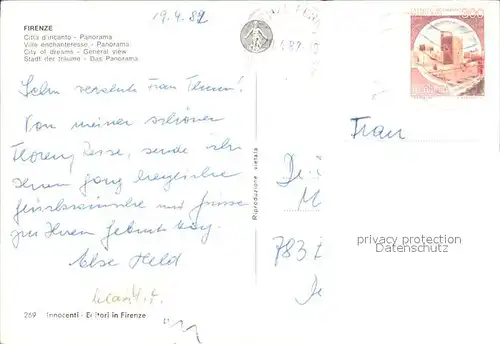 19.4.82
FIRENZE
Città d'incanto - Panorama
Ville enchanteresse - Panorama
City of dreams - General view
Stadt der träume - Das Panorama
Sehr verehrte Frau
Von meiner schönen
Florenz Reise, sende ich
Ihnen ganz herzliche
Glückwünsche und Grüsse
zu Ihrem Geburtstag.
Else Held
Frau
783
Riproduzione vietata
privacy protection
Datenschutz
269 Innocenti - Editori in Firenze